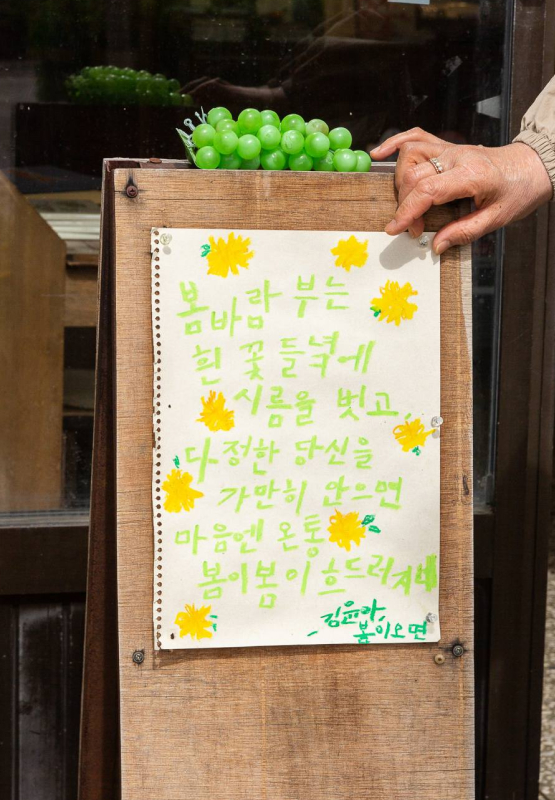 봄바람 부는
흰 꽃 들녘에
시름을 벗고,
다정한 당신을
가만히 안으면
마음엔 온통
봄이봄이흐드러지네
김윤아,
봄이오면